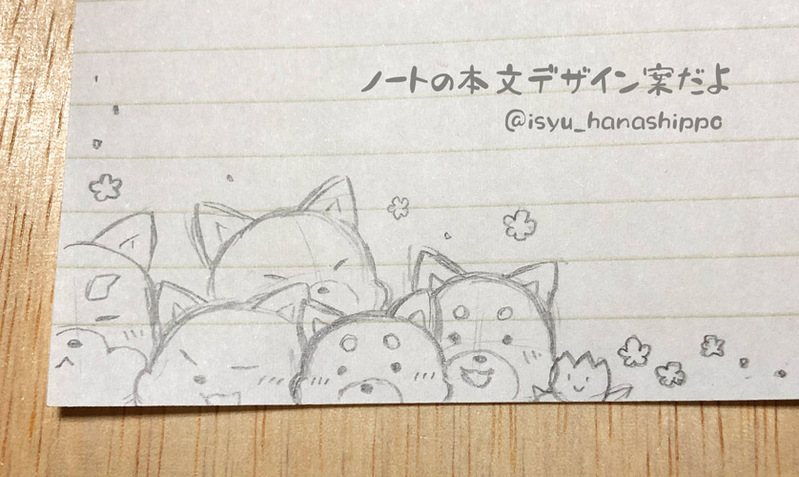 ノートの本文デザイン案だよ
@isyu_hanashippo